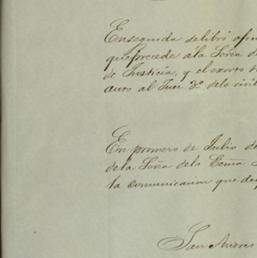 Enseguida se libró ofi
que precede a la Sría d
de Justicia, y el exorto
al Juez 3º de lo civil
En primero de Julio de
de la Sría de la Ecma
la comunicacion que de
San Andres